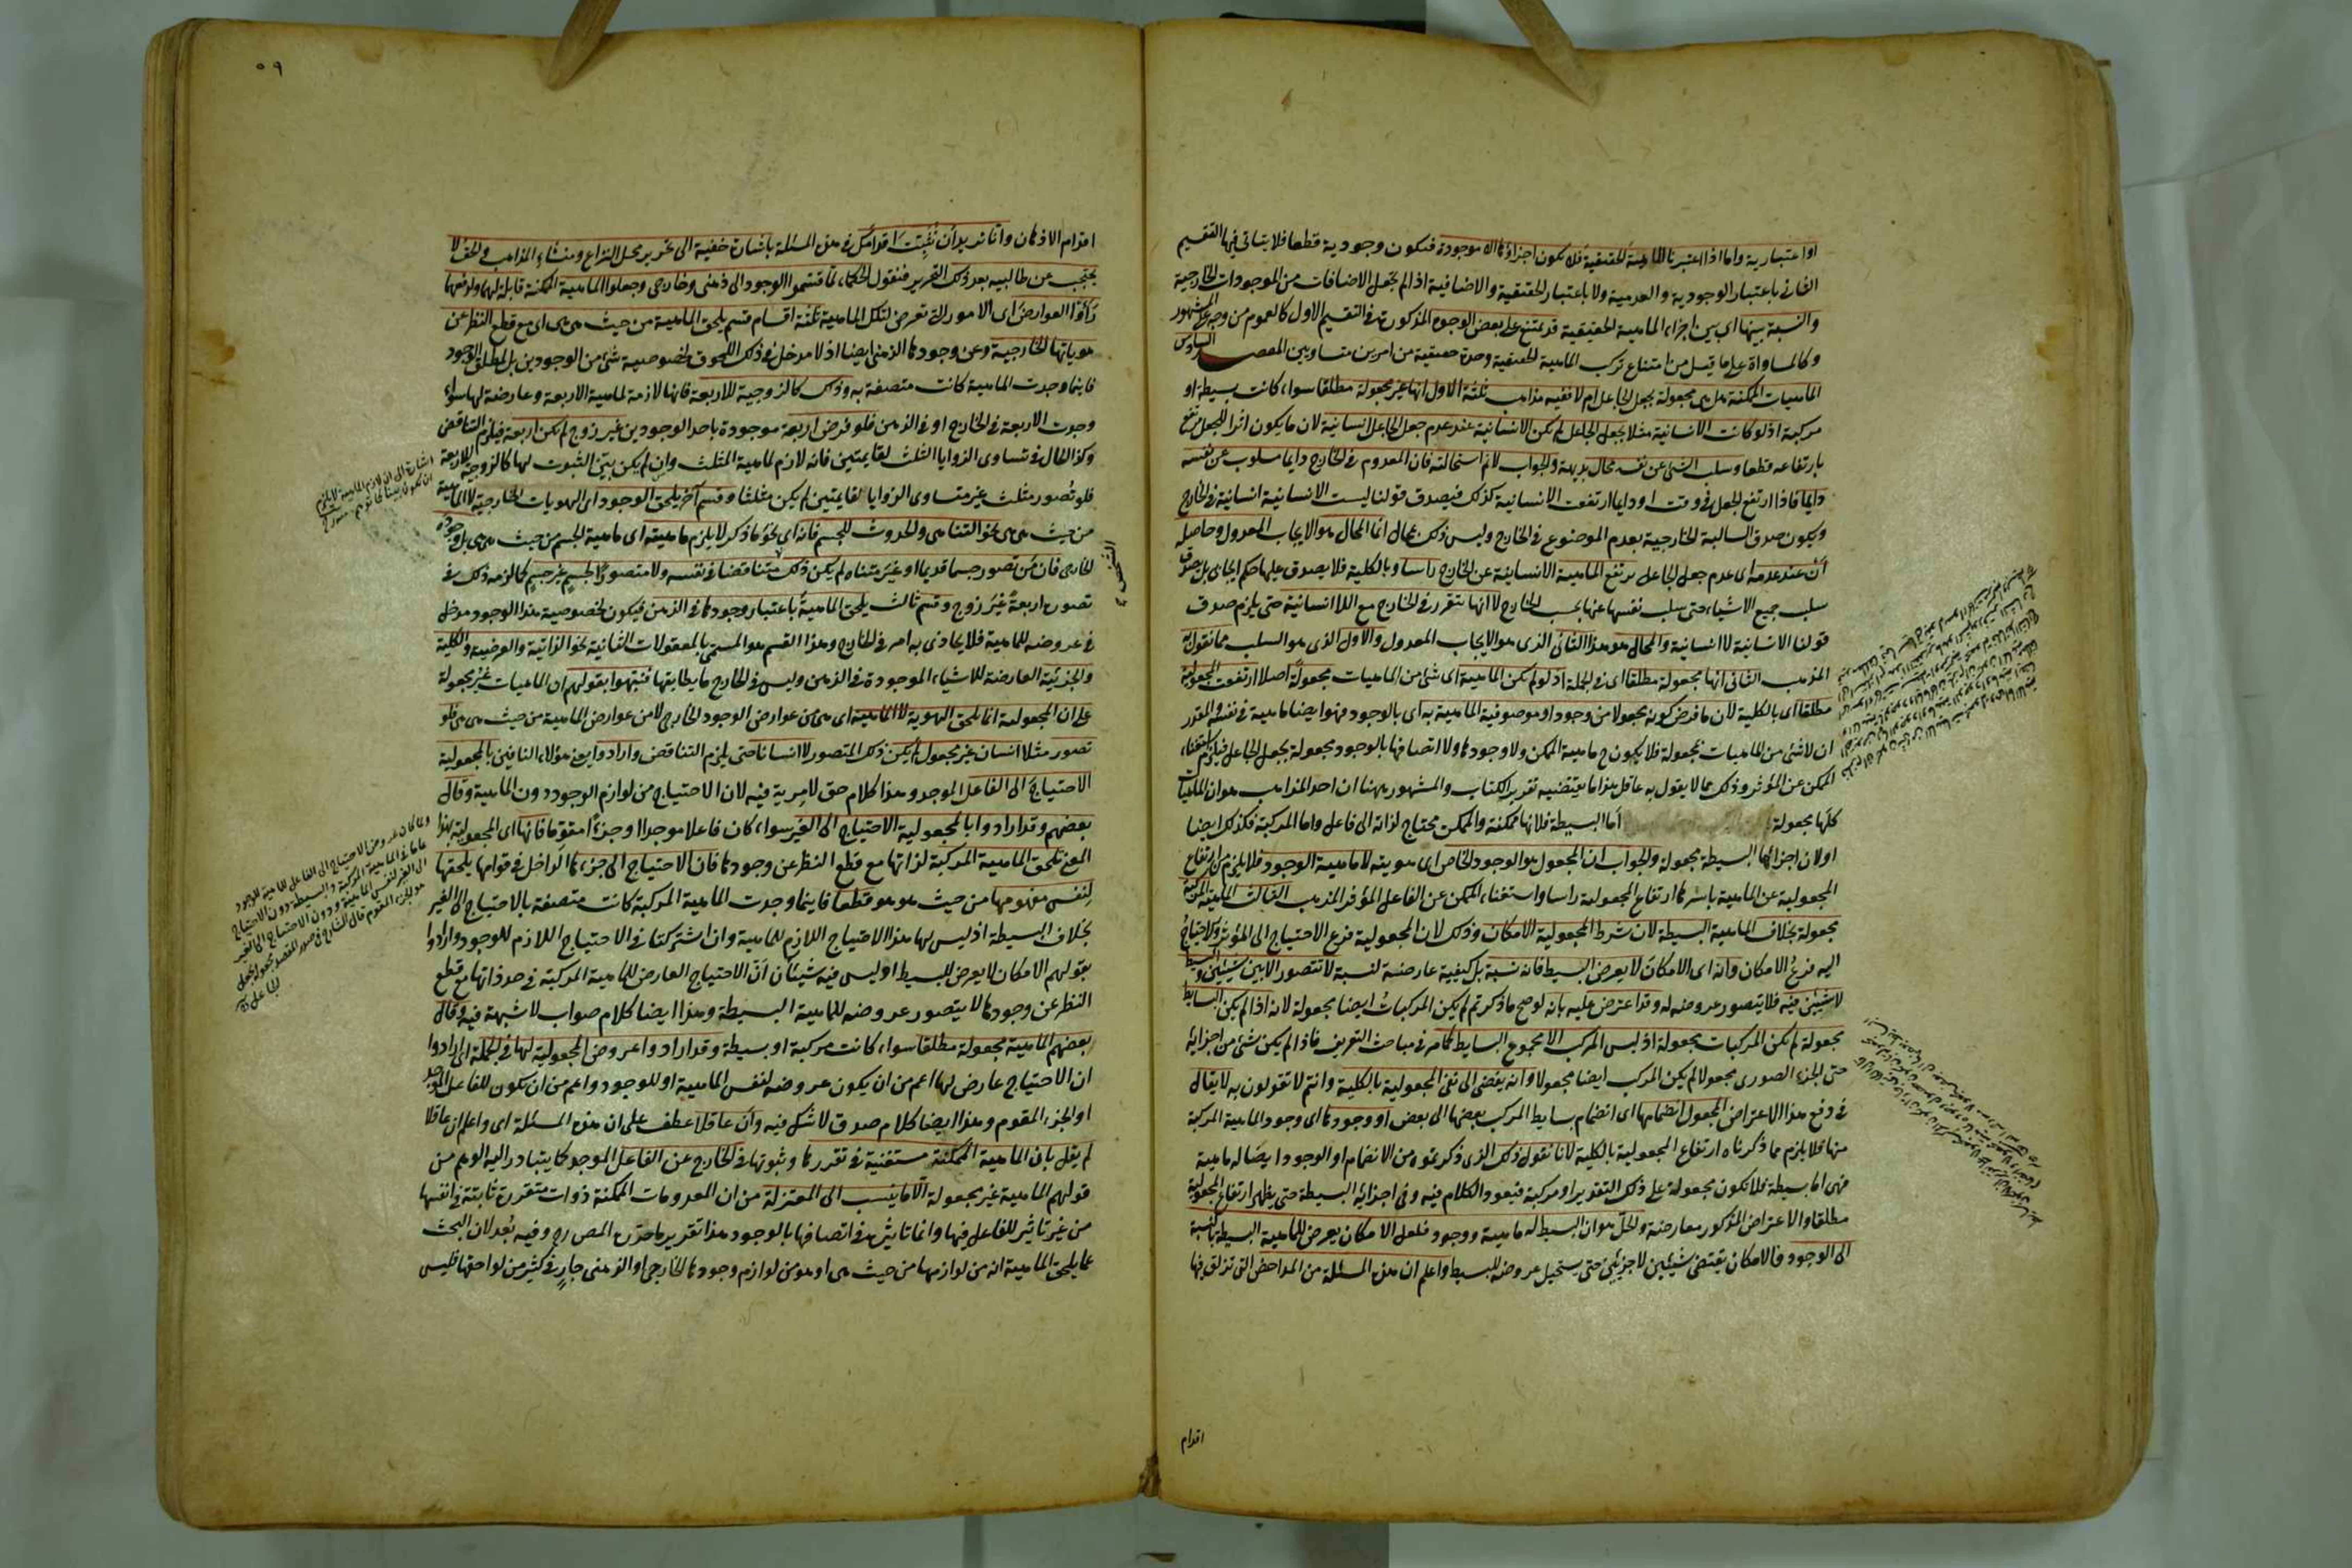 او اعتبارية واما اذا اعتبرنا الماهية الحقيقية فلا يكون اجزاؤها الا موجودة فتكون وجودية قطعا فلا يتأتى فيها التقسيم
الثانى باعتبار الوجودية والعدمية ولا باعتبار الحقيقية والاضافية اذا لم نجعل الاضافات من الموجودات الخارجية
والنسبة بينها اى بين اجزاء الماهية الحقيقية قد يمتنع على بعض الوجوه المذكورة فى التقسيم الاول كالعموم من وجه على المشهور
وكالمساواة على ما قيل من امتناع تركب الماهية الحقيقية وحدة حقيقية من امرين متساويين المقصد السادس
الماهيات الممكنة هل هى مجعولة بجعل الجاعل ام لا ففيه مذاهب ثلثة الاول انها غير مجعولة مطلقا سواء كانت بسيطة او
مركبة اذ لو كانت الانسانية مثلا بجعل الجاعل لم يكن الانسانية عند عدم جعل الجاعل انسانية لان ما يكون اثرا للجعل يرتفع
بارتفاعه قطعا وسلب الشئ عن نفسه محال بديهة والجواب لا نم استحالته فان المعدوم فى الخارج دايما مسلوب عن نفسه
دايما فاذا ارتفع الجعل فى وقت او دايما ارتفعت الانسانية كذلك فيصدق قولنا ليست الانسانية انسانية فى الخارج
ويكون صدق السالبة الخارجية بعدم الموضوع فى الخارج وليس ذلك بمحال انما المحال هو الايجاب المعدول وحاصله
أن عند عدمه اى عدم جعل الجاعل يرتفع الماهية الانسانية عن الخارج راسا وبالكلية فلا يصدق عليها حكم ايجابى بل يصدق
سلب جميع الاشياء حتى سلب نفسها عنها بحسب الخارج لا انها تتقرر فى الخارج مع اللا انسانية حتى يلزم صدق
قولنا الانسانية لا انسانية والمحال هو هذا الثانى الذى هو الايجاب المعدول والاول الذى هو السلب مما نقول به
المذهب الثانى انها مجعولة مطلقا اى فى الجملة اذ لو لم يكن الماهية اى شئ من الماهيات مجعولة اصلا ارتفعت المجعولية
مطلقا اى بالكلية لان ما فرض كونه مجعولا من وجود او موصوفية الماهية به اى بالوجود فهو ايضا ماهية فى نفسه والمقدر
ان لا شئ من الماهيات بمجعولة فلا يكون ح ماهية الممكن ولا وجودها ولا اتصافها بالوجود مجعولة بجعل الجاعل فيلزم استغناء
الممكن عن المؤثر وذلك مما لا يقول به عاقل هذا ما يقتضيه تقرير الكتاب والمشهور ههنا ان احد المذاهب هو ان الماهيات
كلها مجعولة اما البسيطة فلانها ممكنة والممكن محتاج لذاته الى فاعل واما المركبة فكذلك ايضا
او لان اجزائها البسيطة مجعولة والجواب ان المجعول هو الوجود الخاص اى هويته لا ماهية الوجود فلا يلزم من ارتفاع
المجعولية عن الماهية باسرها ارتفاع المجعولية راسا واستغناء الممكن عن الفاعل المؤثر المذهب الثالث الماهية المركبة
مجعولة بخلاف الماهية البسيطة لان شرط المجعولية الامكان وذلك لان المجعولية فرع الاحتياج الى المؤثر والاحتياج
اليه فرع الامكان وانه اى الامكان لا يعرض البسيط فانه نسبة بل كيفية عارضة لنسبة لا تتصور الا بين شيئين والبسيط
لا شيئين فيه فلا يتصور عروضه له وقد اعترض عليه بانه لو صح ما ذكرتم لم يكن المركبات ايضا مجعولة لانه اذا لم يكن البسايط
مجعولة لم تكن المركبات مجعولة اذ ليس المركب الا مجموع البسايط كما مر فى مباحث التعريف فاذا لم يكن شئ من اجزائه
حتى الجزء الصورى مجعولا لم يكن المركب ايضا مجعولا وانه يفضى الى نفى المجعولية بالكلية وانتم لا تقولون به لا يقال
فى دفع هذا الاعتراض المجعول انضمامها اى انضمام بسايط المركب بعضها الى بعض او وجودها اى وجود الماهية المركبة
منها فلا يلزم مما ذكرناه ارتفاع المجعولية بالكلية لانا نقول ذلك الذى ذكرتموه من الانضمام او الوجود ايضا له ماهية
فهى اما بسيطة فلا تكون مجعولة على ذلك التقدير او مركبة فيعود الكلام فيه وفى اجزائه البسيطة حتى يظهر ارتفاع المجعولية
مطلقا والاعتراض المذكور معارضة والحل هو ان البسيط له ماهية ووجود فلعل الامكان يعرض للماهية البسيطة بالنسبة
الى الوجود فالامكان يقتضى شيئين لا جزئين حتى يستحيل عروضه للبسيط واعلم ان هذه المسئلة من المداحض التى تزلق فيها
اقدام
٥٩
اقدام الاذهان وانا نريد ان نثبت اقدامك فى هذه المسئلة باشارة خفية الى تحرير محل النزاع ومنشاء المذاهب فالحق لا
يحتجب عن طالبيه بعد ذلك التحرير فنقول الحكماء لما قسموا الوجود الى ذهنى وخارجى وجعلوا الماهية الممكنة قابلة لهما ولرفعهما
رأوا العوارض اى الامور التى تعرض لتلك الماهية ثلثة اقسام قسم يلحق الماهية من حيث هى هى اى مع قطع النظر عن
هوياتها الخارجية وعن وجودها الذهنى ايضا اذ لا مدخل فى ذلك اللحوق لخصوصية شئ من الوجودين بل لمطلق الوجود
فاينما وجدت الماهية كانت متصفة به وذلك كالزوجية للاربعة فانها لازمة لماهية الاربعة وعارضة لها سواء
وجدت الاربعة فى الخارج او فى الذهن فلو فرض اربعة موجودة باحد الوجودين غير زوج لم يكن اربعة فيلزم التناقض
وكذا الحال فى تساوى الزوايا الثلث لقايمتين فانه لازم لماهية المثلث وان لم يكن بين الثبوت لها كالزوجية للاربعة
فلو تصور مثلث غير متساوى الزوايا لقايمتين لم يكن مثلثا وقسم آخر يلحق الوجود اى الهويات الخارجية لا الماهية
من حيث هى هى نحو التناهى والحدوث للجسم فانه اى نحو ما ذكر لا يلزم ماهيته اى ماهية الجسم من حيث هى هى بل وجوده
الخارجى فان من تصور جسما قديما او غير متناه لم يكن ذلك متناقضا فى نفسه ولا متصورا لجسم غير جسم كما لزمه ذلك فى
تصور اربعة غير زوج وقسم ثالث يلحق الماهية باعتبار وجودها فى الذهن فيكون لخصوصية هذا الوجود مدخل
فى عروضه للماهية فلا يحاذى به امر فى الخارج وهذا القسم هو المسمى بالمعقولات الثانية نحو الذاتية والعرضية والكلية
والجزئية العارضة للاشياء الموجودة فى الذهن وليس فى الخارج ما يطابقها فنبهوا بقولهم ان الماهيات غير مجعولة
على ان المجعولية انما يلحق الهوية لا الماهية اى هى من عوارض الوجود الخارجى لا من عوارض الماهية من حيث هى هى فلو
تصور مثلا انسان غير مجعول لم يكن ذلك المتصور لا انسانا حتى يلزم التناقض وارادوا يعنى هؤلاء النافين بالمجعولية
الاحتياج الى الفاعل الموجد وهذا كلام حق لا مرية فيه لان الاحتياج من لوازم الوجود دون الماهية وقال
بعضهم وقد ارادوا بالمجعولية الاحتياج الى الغير سواء كان فاعلا موجدا او جزءا مقوما فانها اى المجعولية بهذا
المعنى تلحق الماهية المركبة لذاتها مع قطع النظر عن وجودها فان الاحتياج الى جزءها الداخل فى قوامها يلحقها
لنفس مفهومها من حيث هو هو قطعا فاينما وجدت الماهية المركبة كانت متصفة بالاحتياج الى الغير
بخلاف البسيطة اذ ليس لها هذا الاحتياج اللازم للماهية وان اشتركتا فى الاحتياج اللازم للوجود وارادوا
بقولهم الامكان لا يعرض للبسيط اذ ليس فيه شيئان ان الاحتياج العارض للماهية المركبة فى حد ذاتها مع قطع
النظر عن وجودها لا يتصور عروضه للماهية البسيطة وهذا ايضا كلام صواب لا شبهة فيه وقال
بعضهم الماهية مجعولة مطلقا سواء كانت مركبة او بسيطة وقد ارادوا عروض المجعولية لها فى الجملة اى ارادوا
ان الاحتياج عارض لها اعم من ان يكون عروضه لنفس الماهية او للوجود واعم من ان يكون للفاعل الموجد
او الجزء المقوم وهذا ايضا كلام صدق لا شك فيه وأن عاقلا عطف على ان هذه المسئلة اى واعلم ان عاقلا
لم يقل بان الماهية الممكنة مستغنية فى تقررها وثبوتها فى الخارج عن الفاعل الموجد كما يتبادر اليه الوهم من
قولهم الماهية غير مجعولة الا ما ينسب الى المعتزلة من ان المعدومات الممكنة ذوات متقررة ثابتة فى انفسها
من غير تاثير للفاعل فيها وانما تاثيره فى اتصافها بالوجود هذا تقرير ما حرره المص رح وفيه بعد لان البحث
عما يلحق الماهية انه من لوازمها من حيث هى او هو من لوازم وجودها الخارجى او الذهنى جار فى كثير من لواحقها فليس
اشارة الى ان لازم الماهية لا يلزم
ان يكون بينا
وما كان عروض الاحتياج الى الفاعل للماهية للوجود
عاما فى الماهية المركبة والبسيطة دون الاحتياج
الى الغير لنفس الماهية ودون الاحتياج الى الغير
هو الجزء المقوم قال الشارح فى صدر المقصد مجعولة بجعل
الجاعل